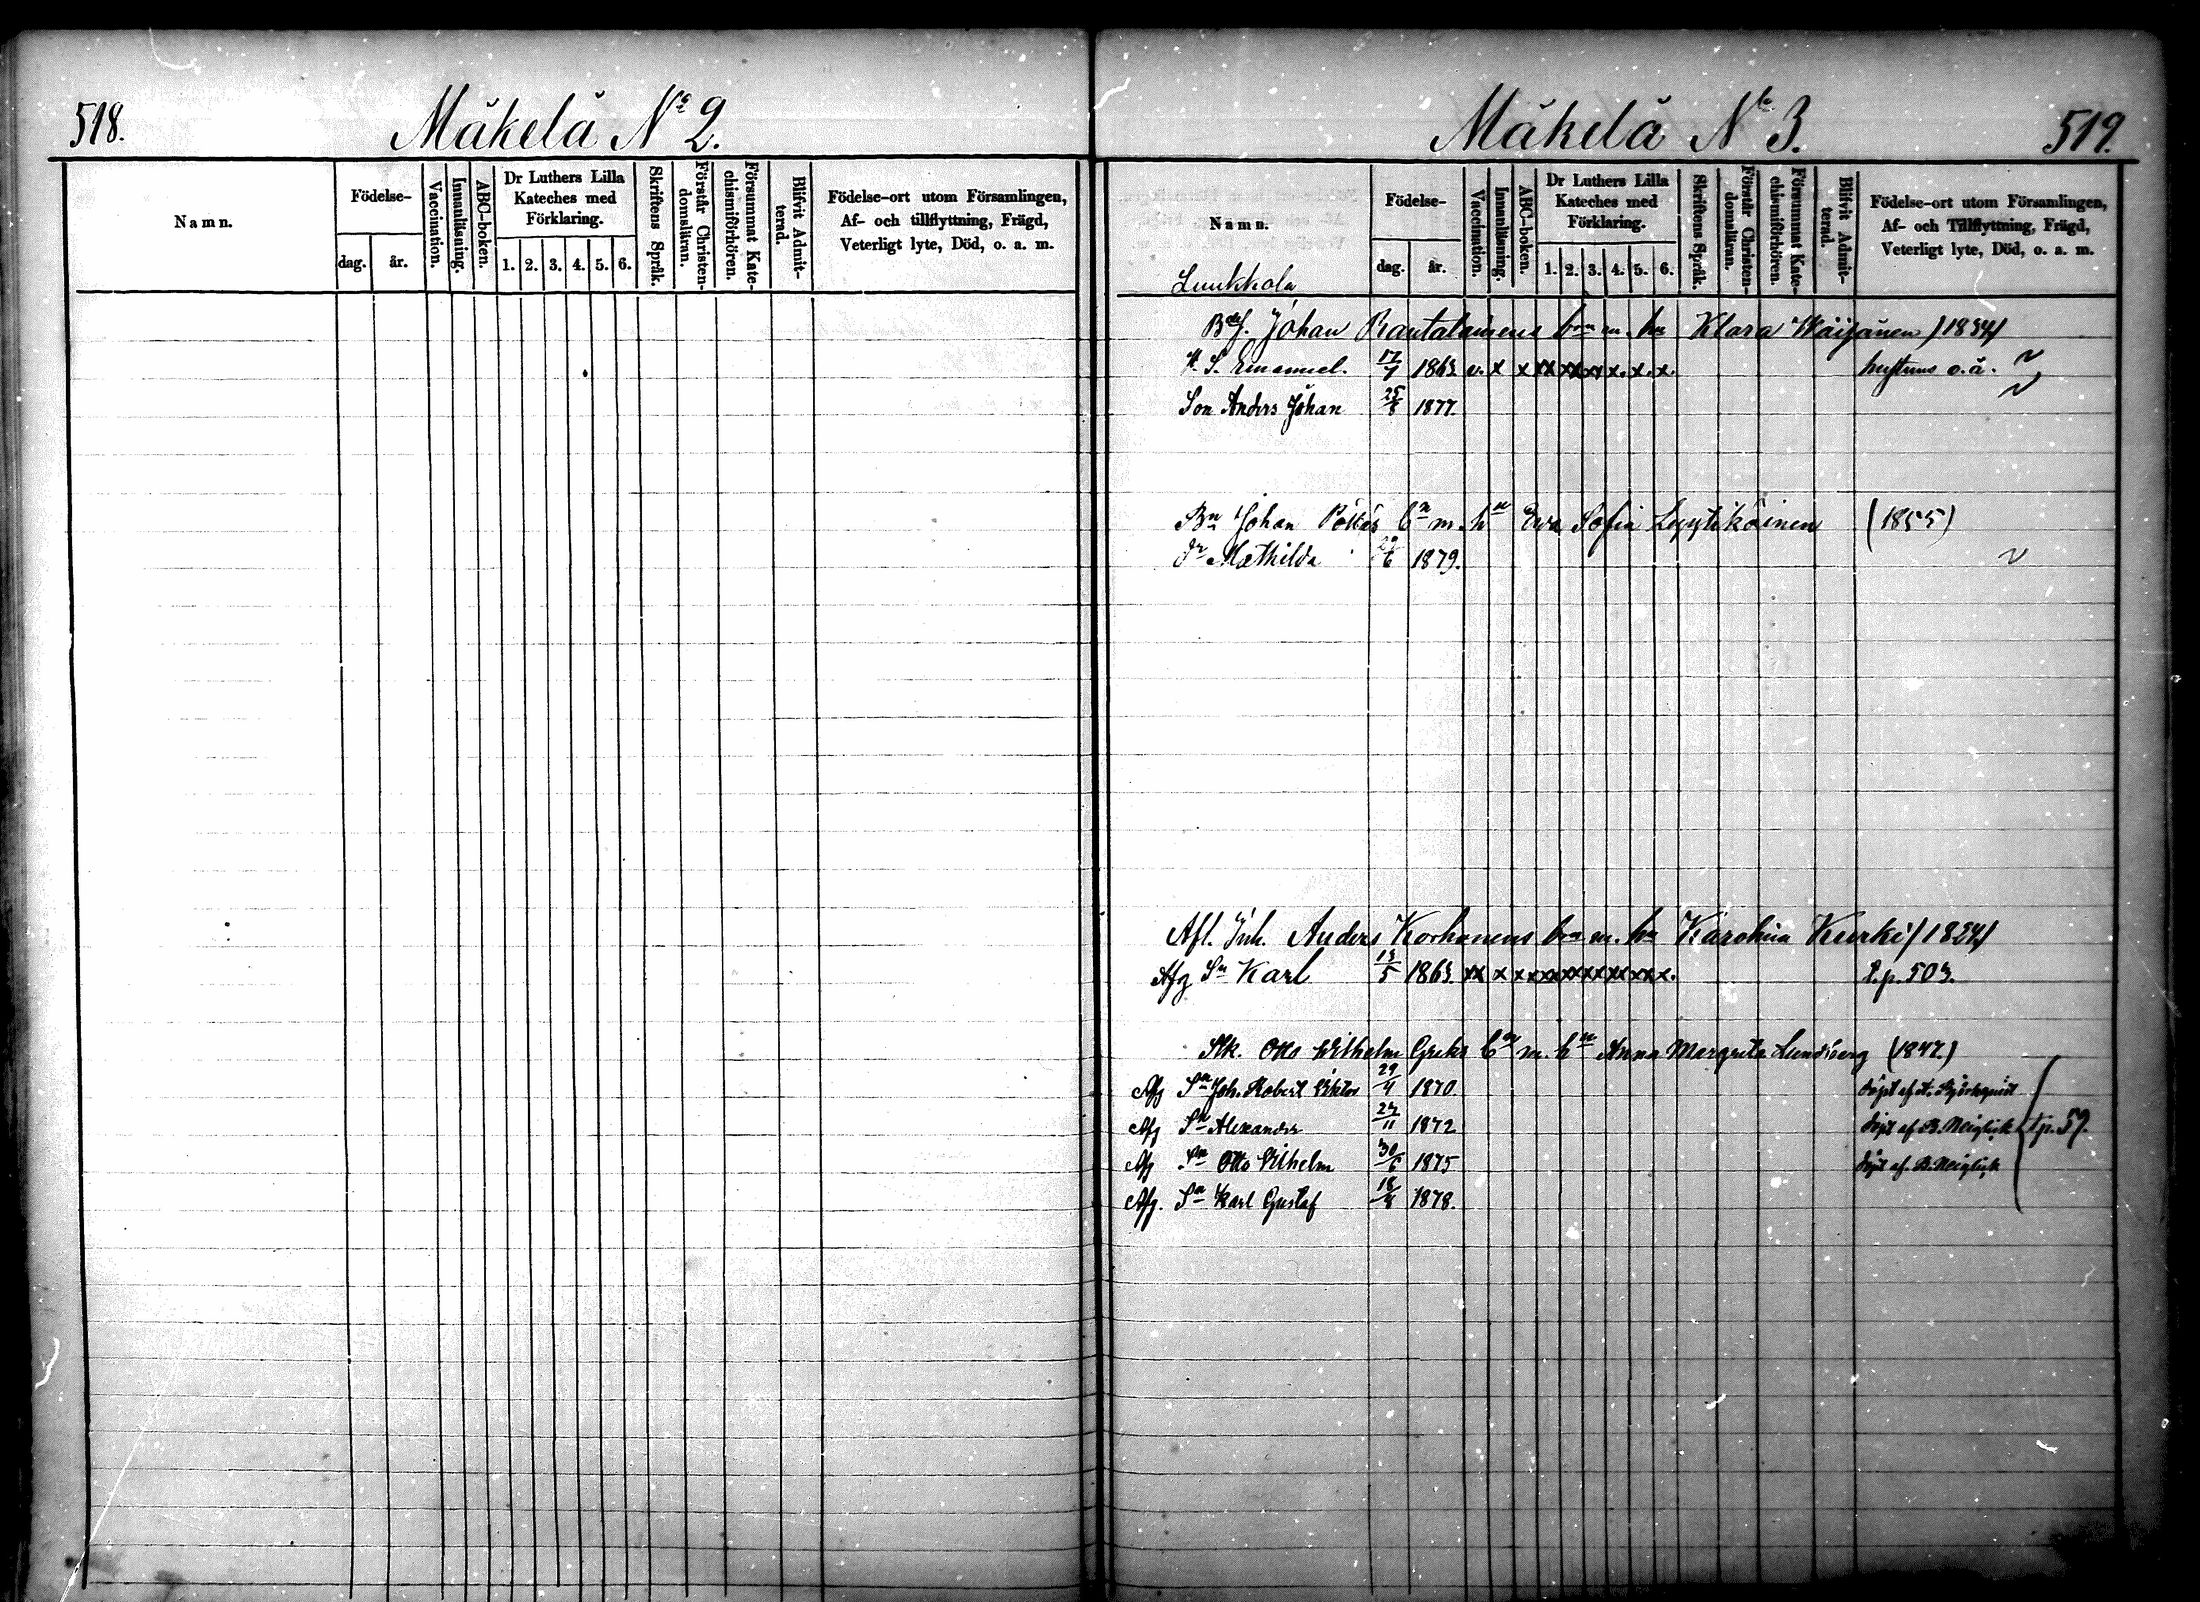 518.
Mäkelä No 2.
Namn.
Födelse-
dag.
år.
Vaccination.
Innanläsning.
ABC-boken.
Dr Luthers Lilla
Kateches med
Förklaring.
1. 2. 3. 4. 5. 6.
Skriftens Språk.
Förstår Christen-
domsläran.
Försummat Kate-
chismiförhören.
Blifvit Admit-
terad.
Födelse-ort utom Församlingen,
Af- och tillflyttning, Frägd,
Veterligt lyte, Död, o. a. m.
Mäkelä No 3.
519.
Namn.
Luukkola
Födelse-
dag.
år.
Vaccination.
Innanläsning.
ABC-boken.
Dr Luthers Lilla
Kateches med
Förklaring.
1. 2. 3. 4. 5. 6.
Skriftens Språk.
Förstår Christen-
domsläran.
Försummat Kate-
chismiförhören.
Blifvit Admit-
terad.
Födelse-ort utom Församlingen,
Af- och Tillflyttning, Frägd,
Veterligt lyte, Död, o. a. m.
Johan Rantalainens brn m. hu Klara Wäisänen (1834)
S. Emanuel. 17/7 1863 v. x x xx xx xx x. x. x.
Son Anders Johan 25/8 1877.
Bn Johan bn m. hu Eva Sofia Lyytikäinen (1855)
Dr Mathilda 1879.
Afl. Inh. Anders Korhonens brn m. hu Karolina Kurki (1824)
Afg Sn Karl 13/5 1863. xx x x xx xx xx xx xx. T.p. 503.
Otto Wilhelm bn m. hu Anna Margreta Lundberg (1847.)
Afg Sn Joh. Robert Viktor 29/4 1870. döpt af A. Björkqvist
Afg Sn Alexander 27/11 1872 döpt af B. Neiglick t.p. 57.
Afg Sn Otto Vilhelm 30/6 1875 döpt af. B. Neiglick
Afg. Sn Karl Gustaf 18/4 1878.